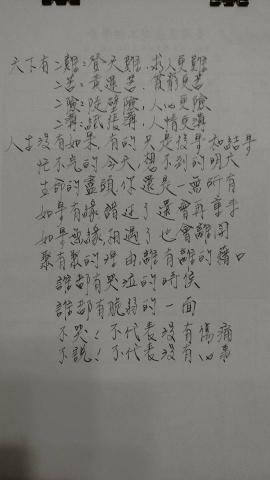 天下有二難：登天難，求人更難
二苦：黃蓮苦，貧窮更苦
二險：陡壁險，人心更險
二薄：紙張薄，人情更薄
人生沒有如果，有的只是後果和結果
忙不完的今天，想不到的明天
生命的盡頭你還是一無所有
如果有緣錯過了還會再重來
如果無緣相遇了也會離開
聚有聚的理由離有離的藉口
誰都有哭泣的時候
誰都有脆弱的一面
不哭！不代表沒有傷痛
不說！不代表沒有心事